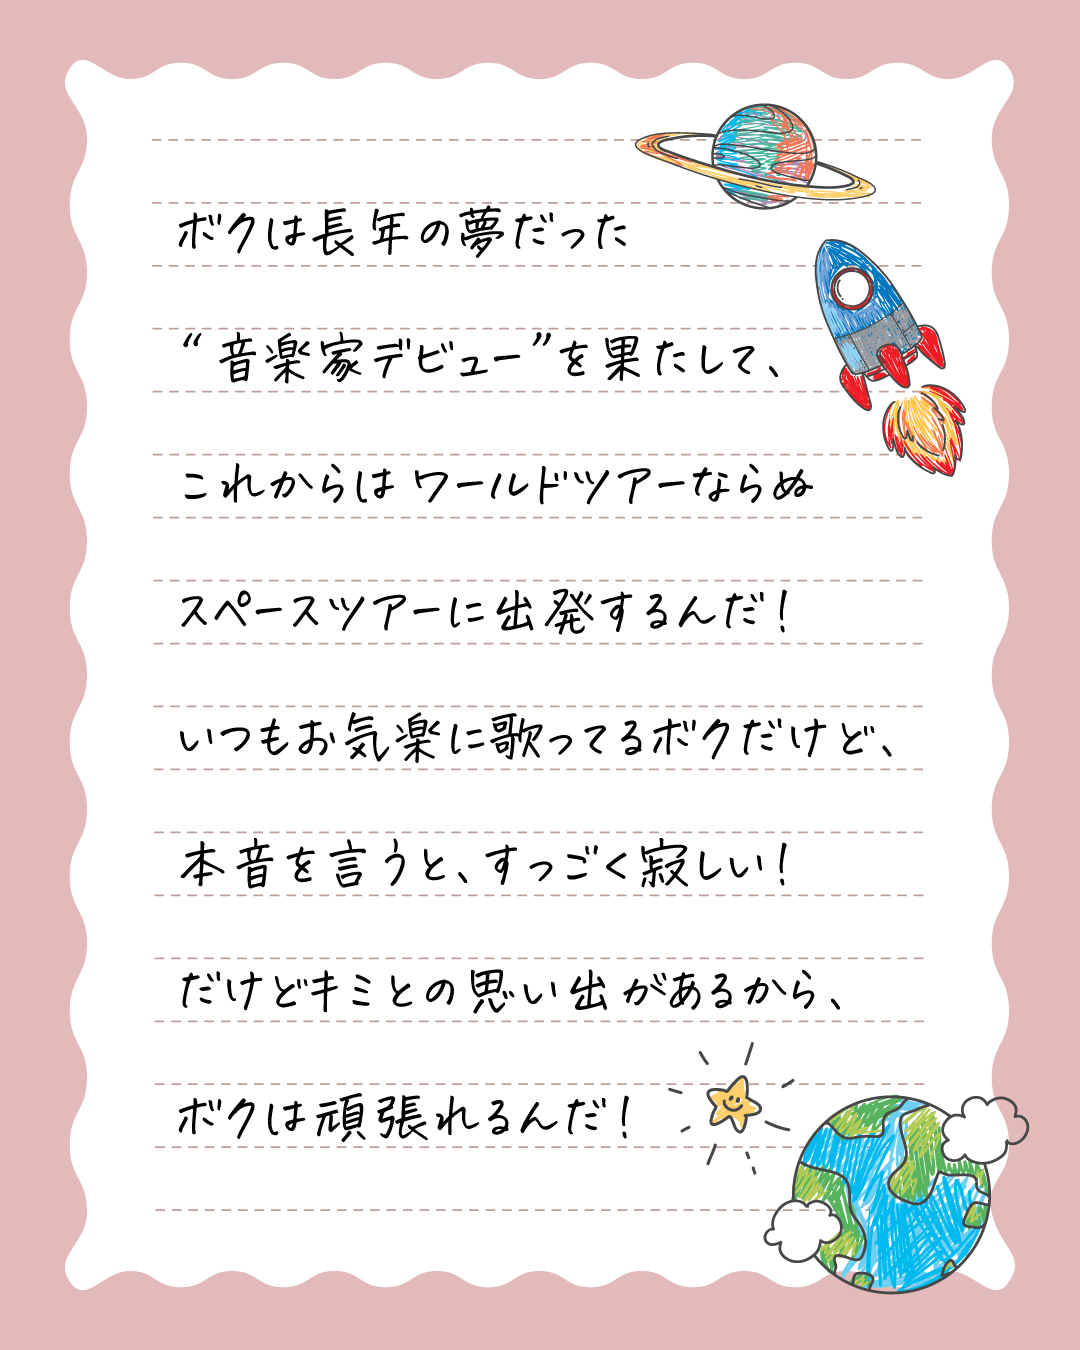 ボクは長年の夢だった
“音楽家デビュー”を果たして、
これからはワールドツアーならぬ
スペースツアーに出発するんだ！
いつもお気楽に歌ってるボクだけど、
本音を言うと、すっごく寂しい！
だけどキミとの思い出があるから、
ボクは頑張れるんだ！